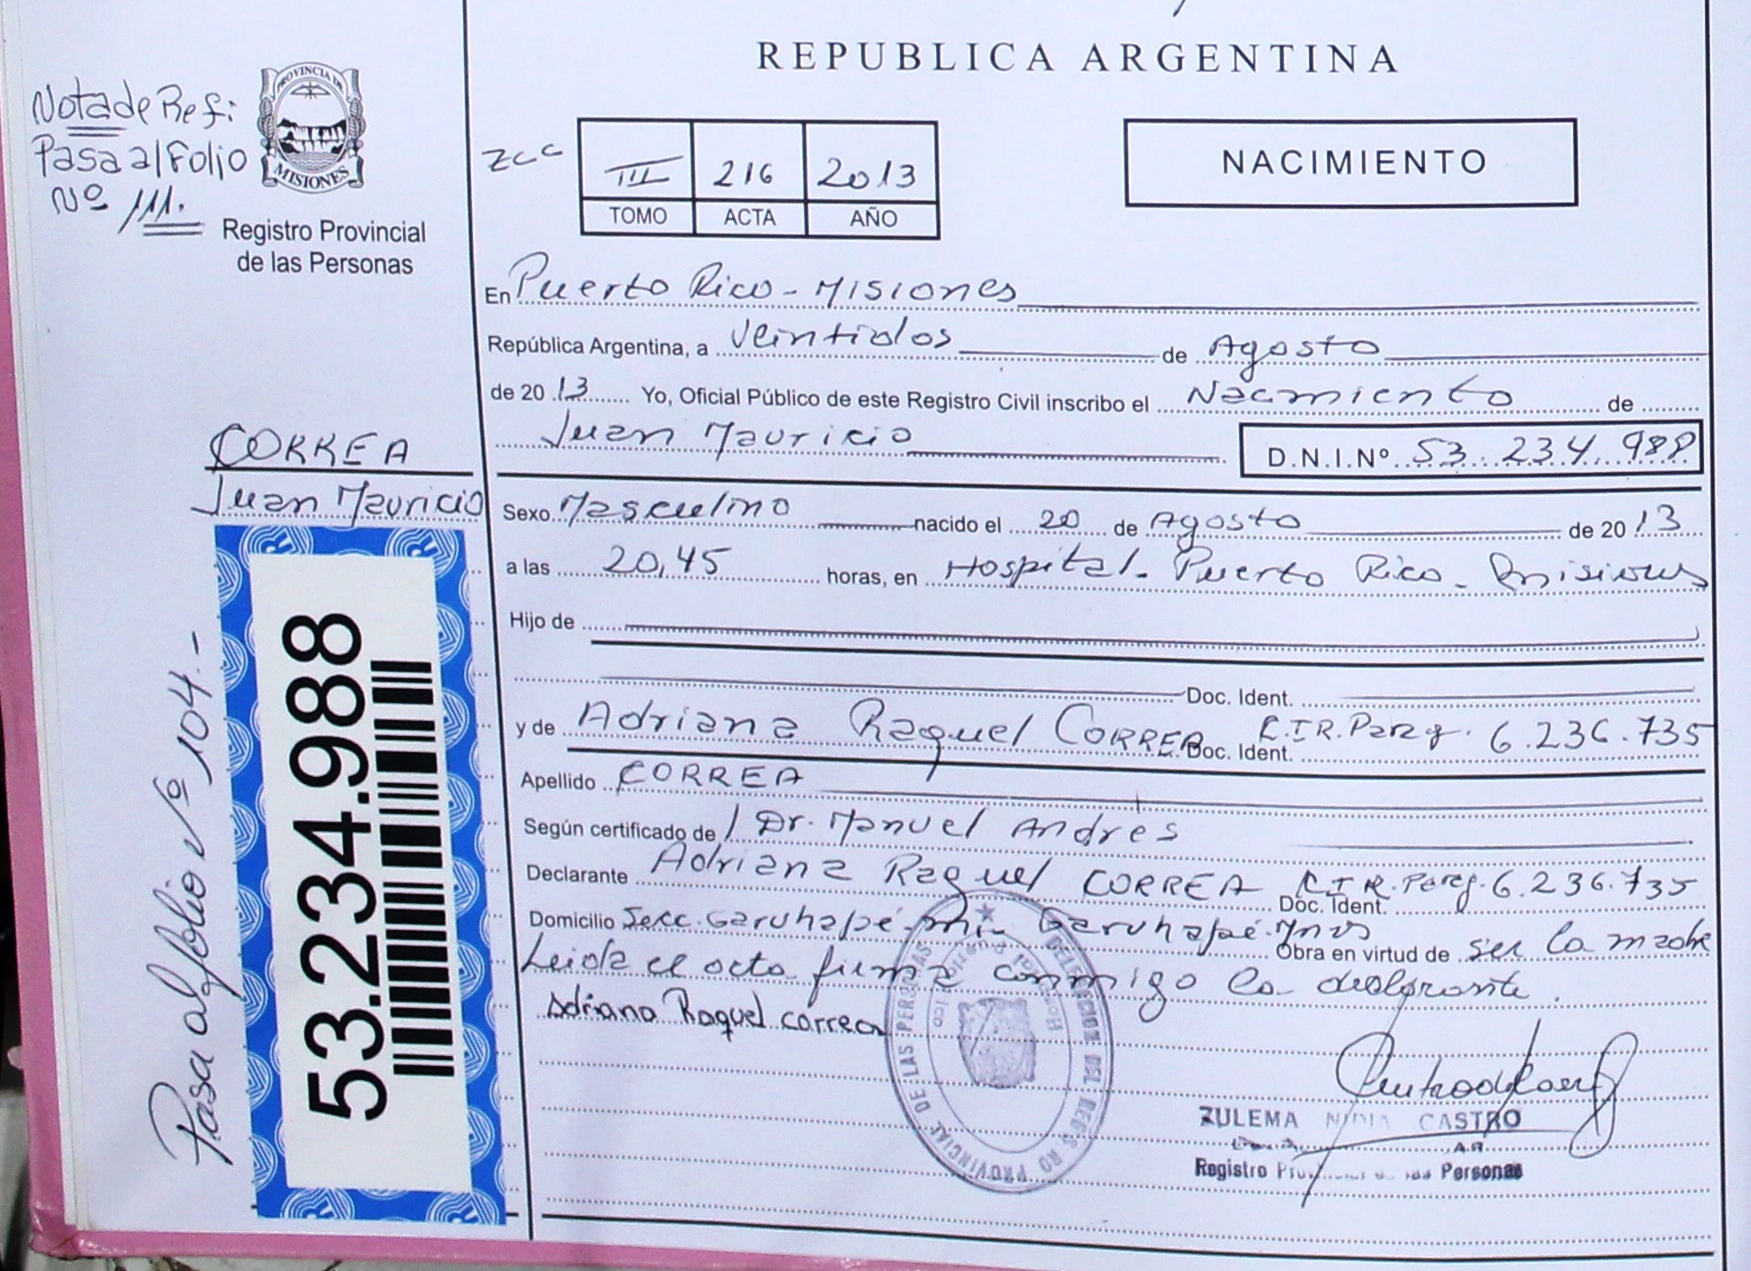 REPUBLICA ARGENTINA
Nota de Ref:
Pasa al Folio
Nº 111.
PROVINCIA DE
MISIONES
Registro Provincial
de las Personas
zcc
III 216 2013
TOMO ACTA AÑO
NACIMIENTO
En Puerto Rico - Misiones
República Argentina, a Veintidos de Agosto
de 2013 Yo, Oficial Público de este Registro Civil inscribo el Nacimiento de
Juan Mauricio D.N.I.Nº 53.234.988
CORREA
Juan Mauricio
Sexo Masculino nacido el 20 de Agosto de 2013
a las 20,45 horas, en Hospital - Puerto Rico - Misiones
Hijo de
Doc. Ident.
y de Adriana Raquel CORREA Doc. Ident. C.I.R.Parag. 6.236.735
Apellido CORREA
Según certificado de Dr. Manuel Andres
Declarante Adriana Raquel CORREA Doc. Ident. C.I.R.Parag. 6.236.735
Domicilio Secc. Garuhapé-mi - Garuhapé - Mnes Obra en virtud de ser la madre
Leida el acta firma conmigo la declarante.
Adriana Raquel Correa
53.234.988
Pasa al folio Nº 104.-
DELEGACION DEL REGISTRO PROVINCIAL DE LAS PERSONAS
Hospital Puerto Rico
ZULEMA NIDIA CASTRO
Registro Provincial de las Personas